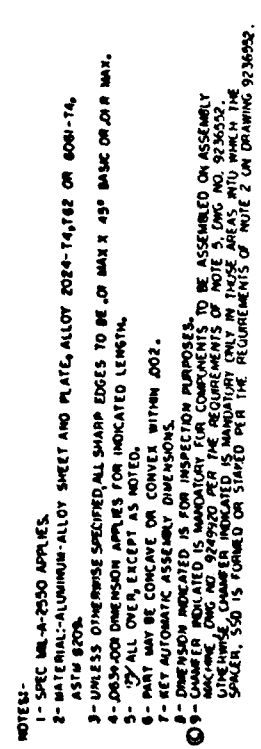 NOTES:-
1- SPEC MIL-A-2550 APPLIES.
2- MATERIAL:-ALUMINUM-ALLOY SHEET AND PLATE, ALLOY 2024-T4, T62 OR 6061-T4,
ASTM B209.
3- UNLESS OTHERWISE SPECIFIED, ALL SHARP EDGES TO BE .01 MAX X 45° BASIC OR .01 R MAX.
4- .065±.001 DIMENSION APPLIES FOR INDICATED LENGTH.
5- 125 ALL OVER, EXCEPT AS NOTED.
6- PART MAY BE CONCAVE OR CONVEX WITHIN .002.
7- KEY AUTOMATIC ASSEMBLY DIMENSIONS.
8- DIMENSION INDICATED IS FOR INSPECTION PURPOSES.
Ⓒ 9- CHAMFER INDICATED IS MANDATORY FOR COMPONENTS TO BE ASSEMBLED ON ASSEMBLY
MACHINE, DWG. NO. 9249920 PER THE REQUIREMENTS OF NOTE 5, DWG NO. 9236552.
OTHERWISE, CHAMFER INDICATED IS MANDATORY ONLY IN THOSE AREAS INTO WHICH THE
SPACER, SSD IS FORMED OR STAKED PER THE REQUIREMENTS OF NOTE 2 ON DRAWING 9236552.